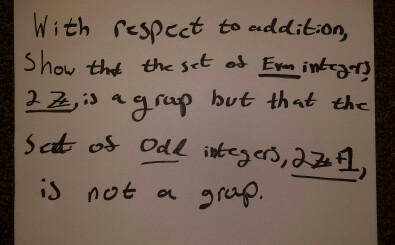 With respect to addition,
Show that the set of Even integers,
2ℤ, is a group but that the
set of Odd integers, 2ℤ+1,
is not a group.